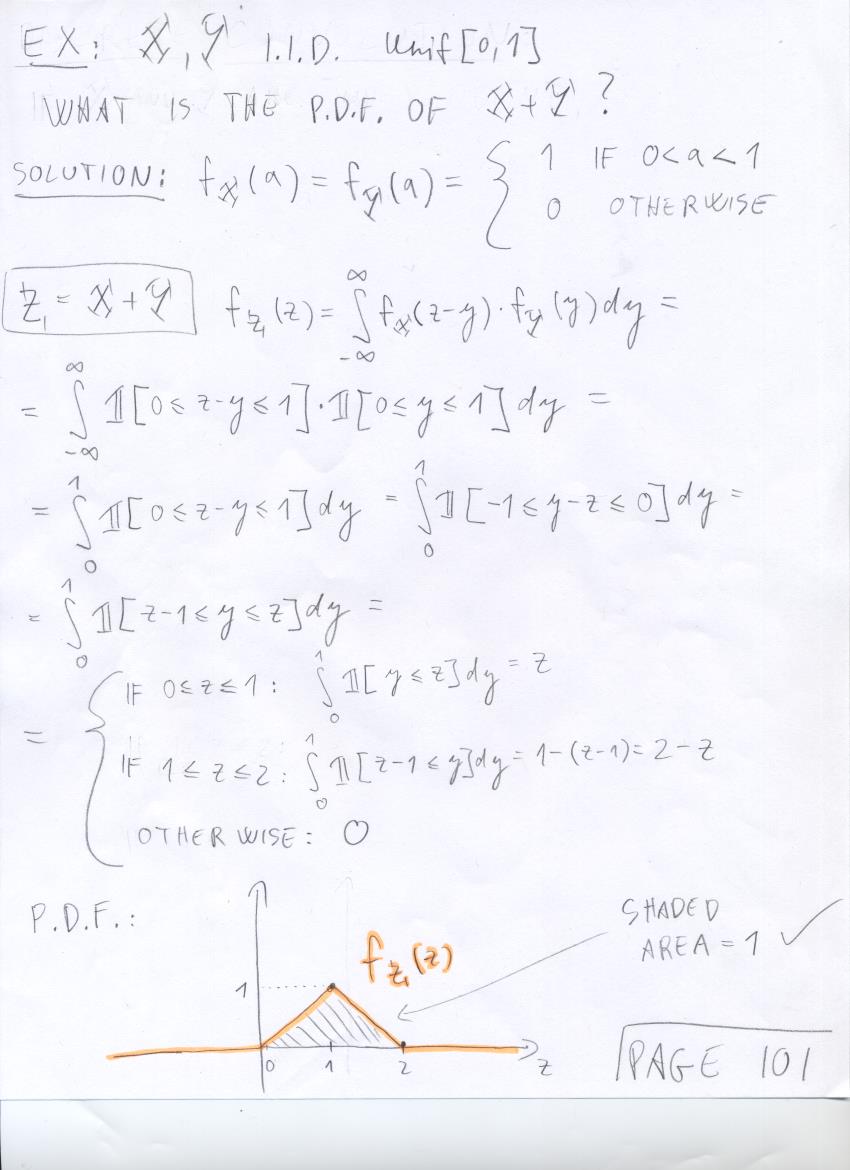 EX: X, Y I.I.D. Unif [0,1]
WHAT IS THE P.D.F. OF X+Y ?
SOLUTION: f_X(a) = f_Y(a) = { 1 IF 0<a<1
0 OTHERWISE
Z = X+Y f_Z(z) = ∫_{-∞}^{∞} f_X(z-y)·f_Y(y)dy =
= ∫_{-∞}^{∞} 𝟙[0≤z-y≤1]·𝟙[0≤y≤1]dy =
= ∫_0^1 𝟙[0≤z-y≤1]dy = ∫_0^1 𝟙[-1≤y-z≤0]dy =
= ∫_0^1 𝟙[z-1≤y≤z]dy =
= { IF 0≤z≤1: ∫_0^1 𝟙[y≤z]dy = z
IF 1≤z≤2: ∫_0^1 𝟙[z-1≤y]dy = 1-(z-1) = 2-z
OTHERWISE: 0
P.D.F.:
SHADED
AREA = 1 ✓
f_Z(z)
1
0 1 2 z
PAGE 101